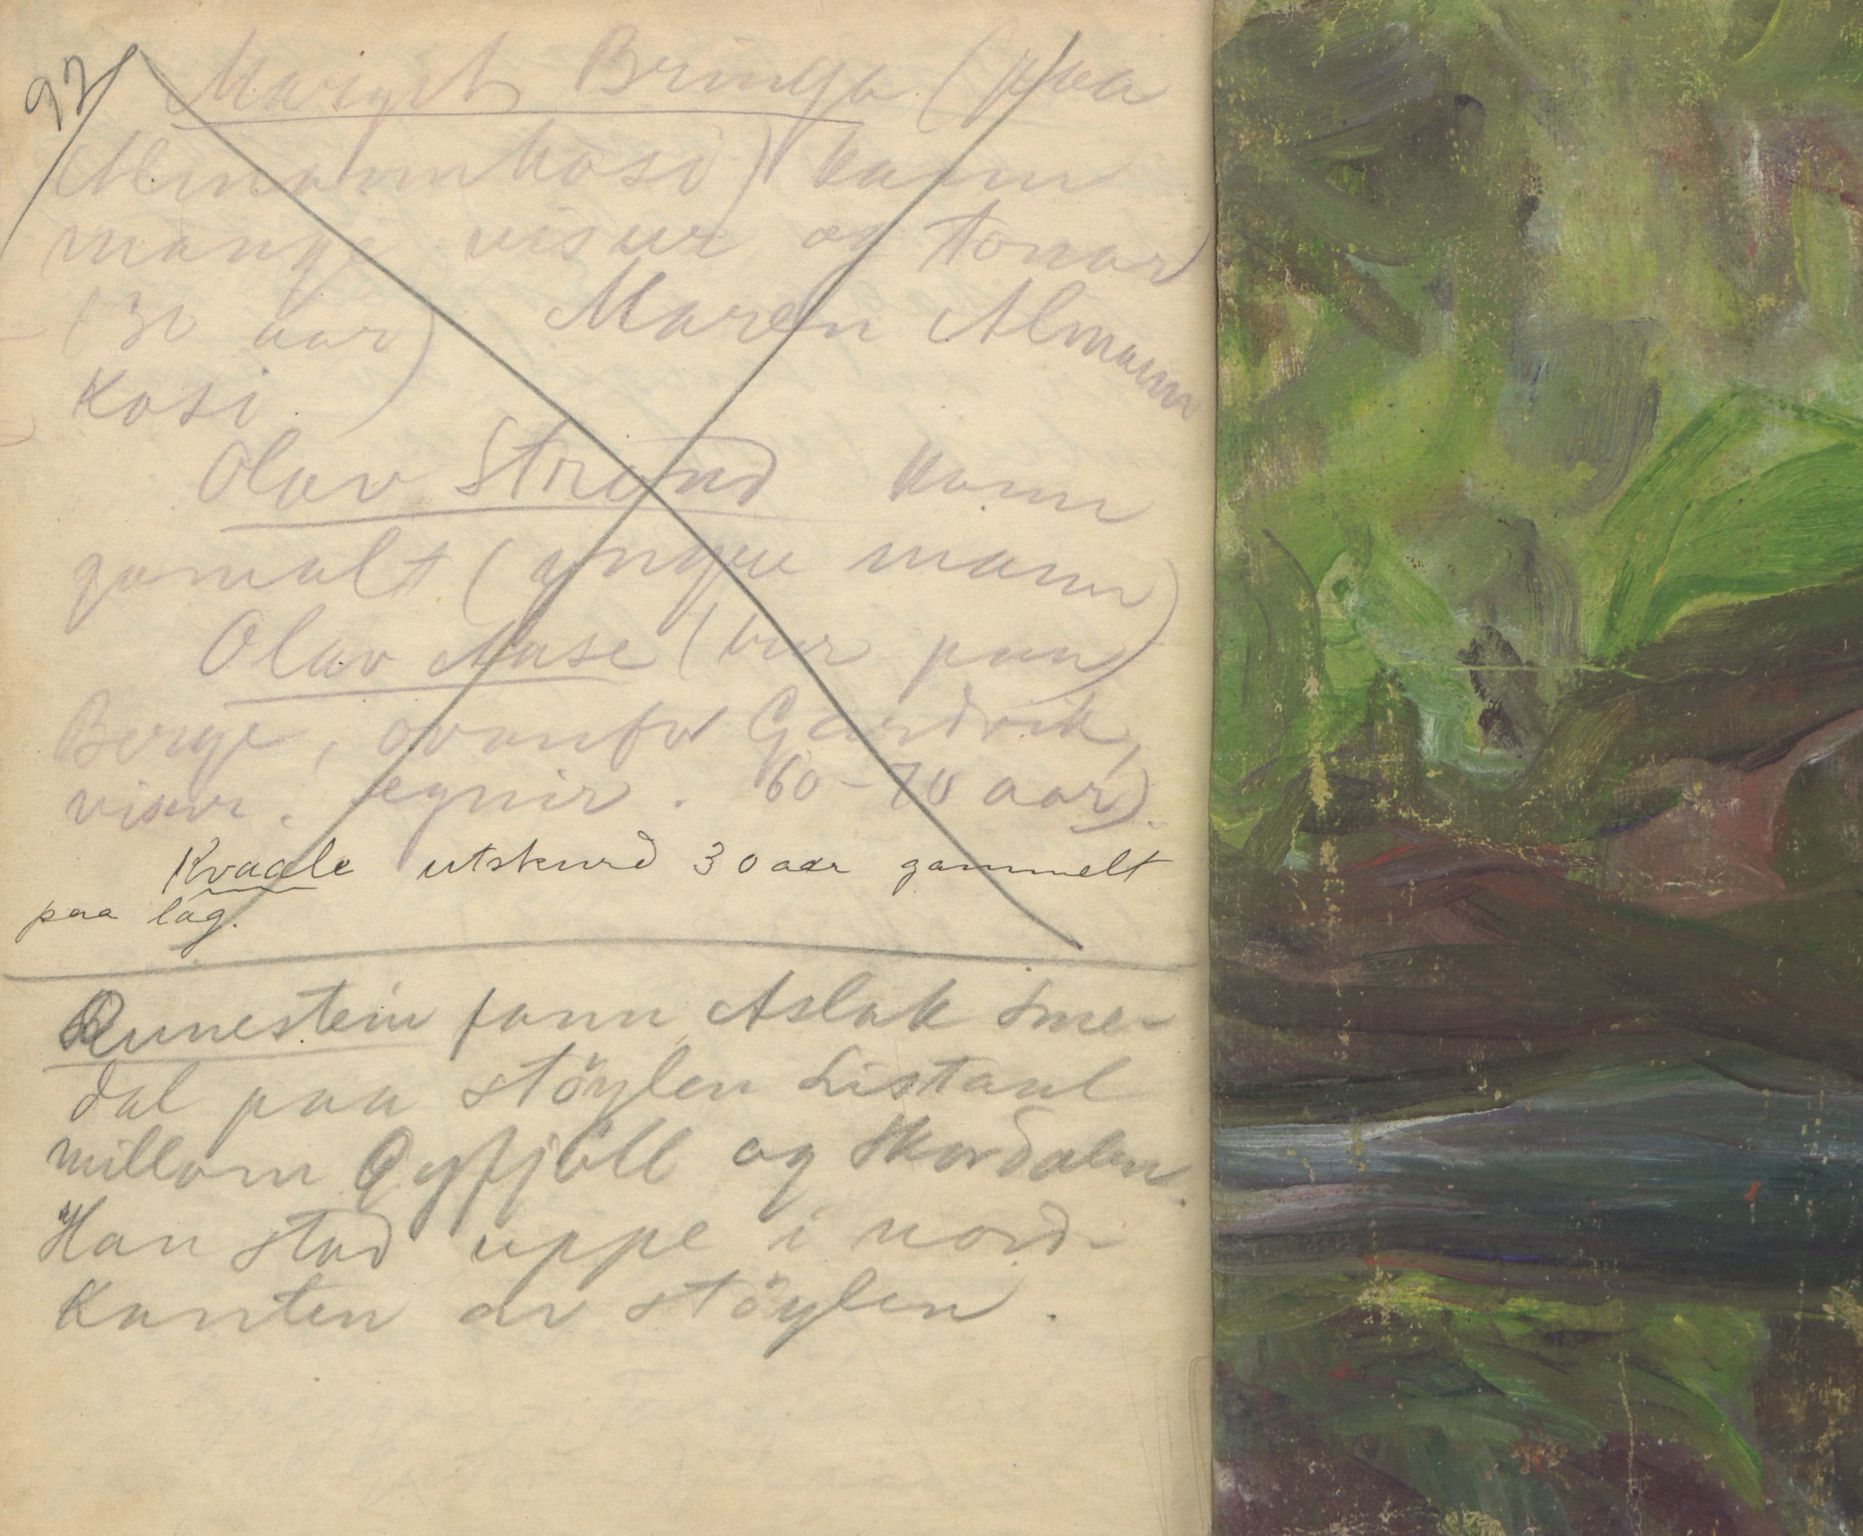 92
Margit Bringa (paa
Almannkosi) kann
mange visur og tonar
(30 aar) Maren Almann
Kosi
Olav Strand kann
gamalt (yngre mann)
Olav Aase (bur paa
Berge, ovanfor Gardvik,
visur. egnir. 60-70 aar).
Kvaale utskurd 30 aar gammelt
paa lag.
Runestein fann Aslak Sme-
dal paa stöylen Listaul
millom Gyfjöll og Skordalen.
Han stod uppe i nord-
Kanten av stöylen.